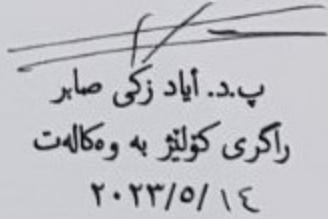 پ.د. أياد زكى صابر
راگری کۆلێژ بە وەکالەت
٢٠٢٣/٥/١٤